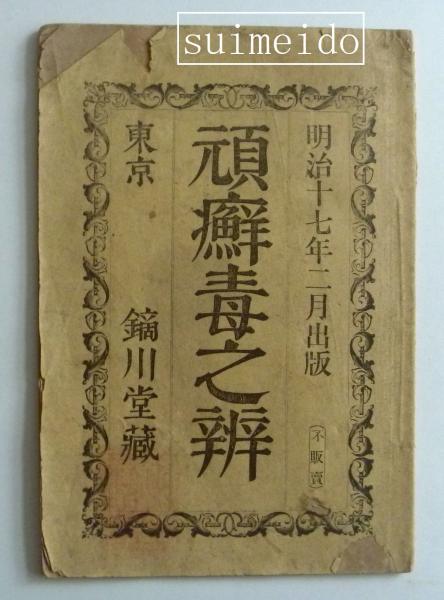 suimeido
明治十七年二月出版
(不販賣)
頑癬毒之辨
東京
鏑川堂藏